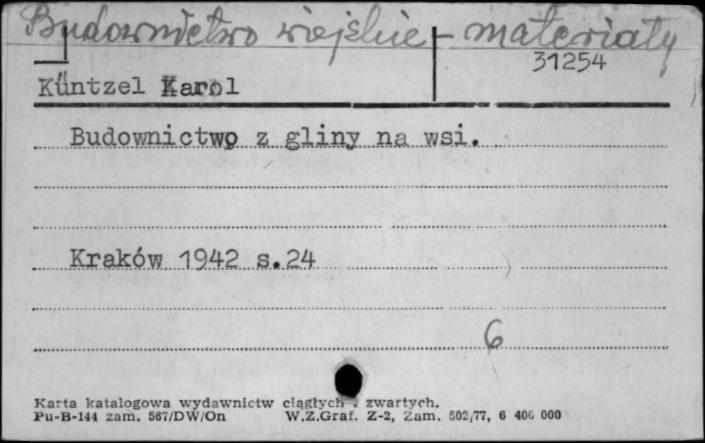 Budownictwo wiejskie - materiały
31254
Küntzel Karol
Budownictwo z gliny na wsi.
Kraków 1942 s.24
6
Karta katalogowa wydawnictw ciągłych i zwartych.
Pu-B-144 zam. 567/DW/On W.Z.Graf. Z-2, Zam. 502/77, 6 400 000